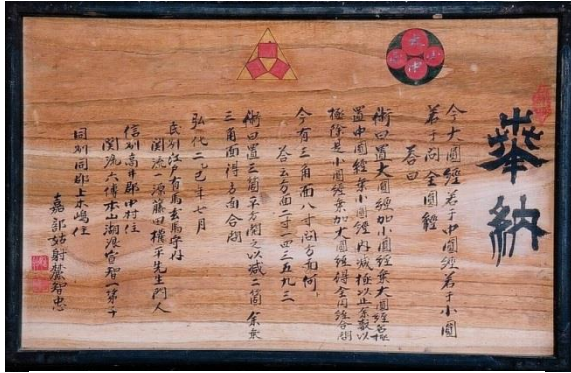 奉納
大
小
中
今大圓経若干中圓経若干小圓
若干問全圓経
答曰
術曰置大圓経加小圓経乗大圓経名極
置中圓経乗小圓経内減極以止余数以
極除是小圓経乗加大圓経得全円経合問
今有三角面八寸問方面何
答云方面二寸一四三五九三
術曰置三箇平方開之以減二箇余乗
三角面得方面合問
弘化二巳年七月
武州江戸有馬玄馬守内
関流一源藤田権平先生門人
信州高井郡中村住
関流六傳本山湖浪家智一弟子
同州同郡上木嶋住
嘉部姑射智忠